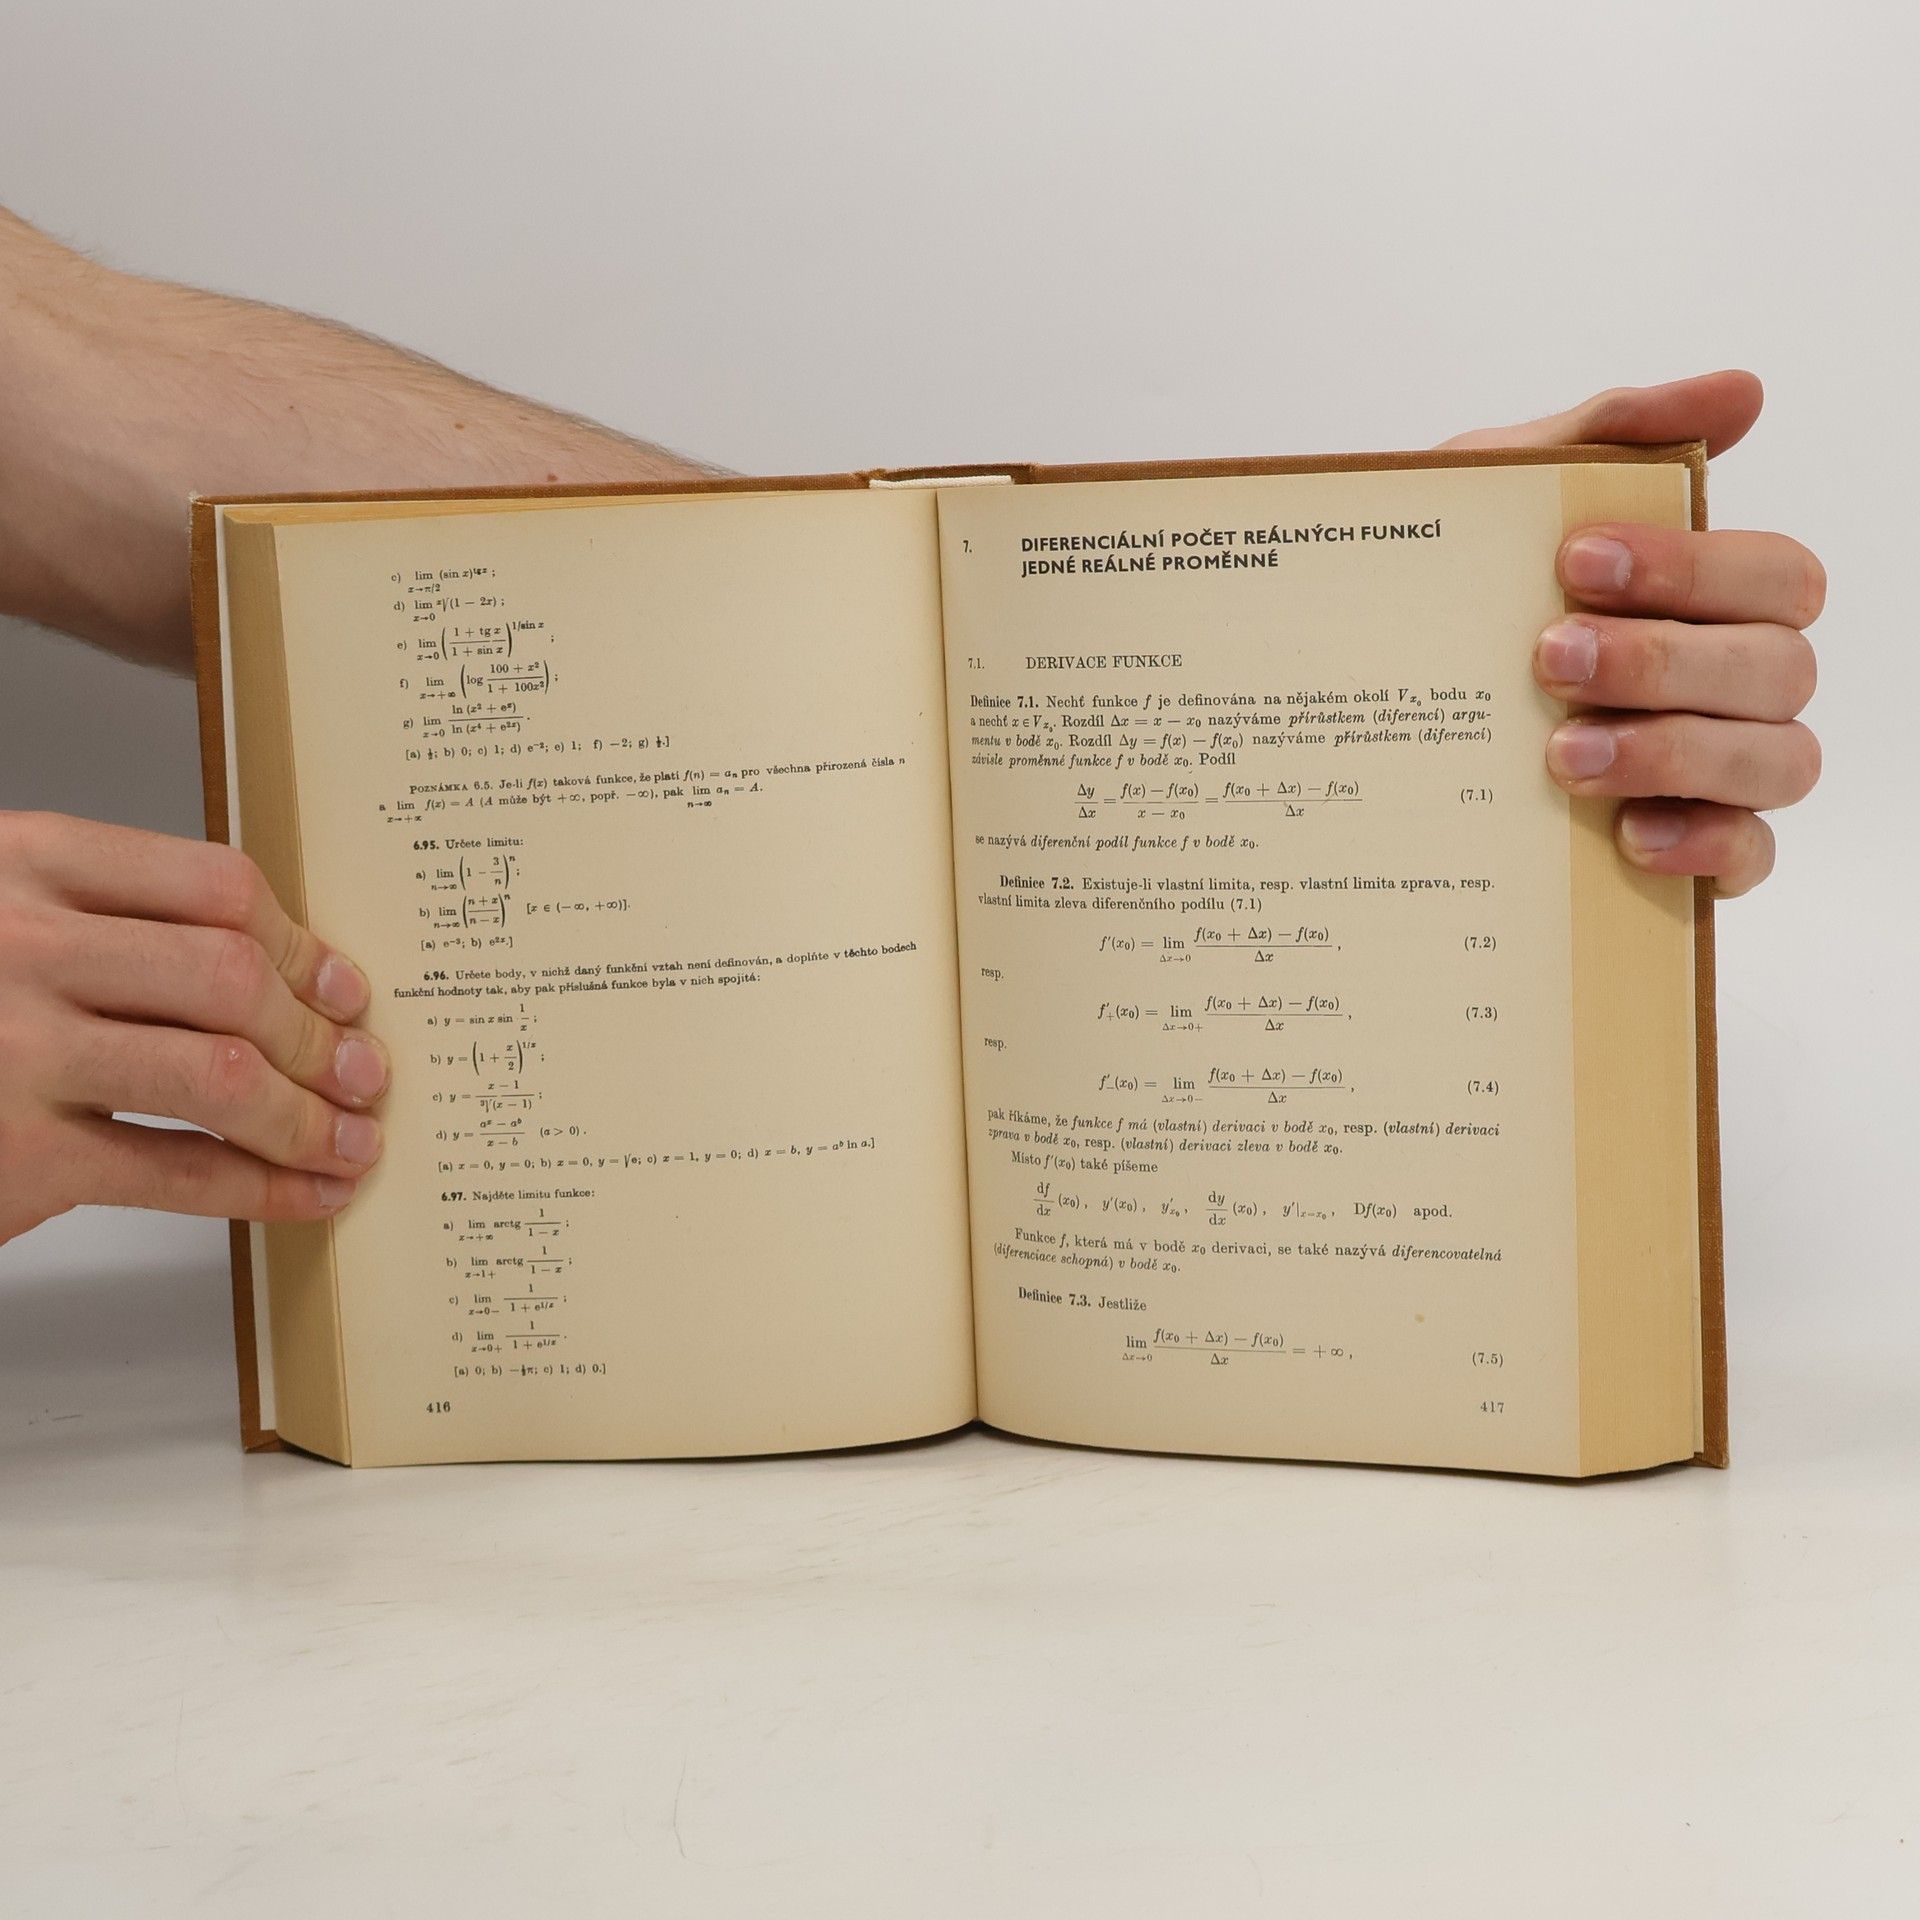 c) lim (sin x)^{tg x} ;
x→π/2
d) lim ^x√(1 − 2x) ;
x→0
e) lim ( (1 + tg x)/(1 + sin x) )^{1/sin x} ;
x→0
f) lim ( log (100 + x²)/(1 + 100x²) ) ;
x→+∞
g) lim ln (x² + e^x) / ln (x⁴ + e^{2x}) .
x→0
[a) ½; b) 0; c) 1; d) e⁻²; e) 1; f) −2; g) ½.]
POZNÁMKA 6.5. Je-li f(x) taková funkce, že platí f(n) = aₙ pro všechna přirozená čísla n
a lim f(x) = A (A může být +∞, popř. −∞), pak lim aₙ = A.
x→+∞ n→∞
6.95. Určete limitu:
a) lim (1 − 3/n)^n ;
n→∞
b) lim ((n + x)/(n − x))^n [x ∈ (−∞, +∞)].
n→∞
[a) e⁻³; b) e^{2x}.]
6.96. Určete body, v nichž daný funkční vztah není definován, a doplňte v těchto bodech
funkční hodnoty tak, aby pak příslušná funkce byla v nich spojitá:
a) y = sin x sin 1/x ;
b) y = (1 + x/2)^{1/x} ;
c) y = (x − 1)/³√(x − 1) ;
d) y = (a^x − a^b)/(x − b) (a > 0) .
[a) x = 0, y = 0; b) x = 0, y = √e; c) x = 1, y = 0; d) x = b, y = a^b ln a.]
6.97. Najděte limitu funkce:
a) lim arctg 1/(1 − x) ;
x→+∞
b) lim arctg 1/(1 − x) ;
x→1+
c) lim 1/(1 + e^{1/x}) ;
x→0−
d) lim 1/(1 + e^{1/x}) .
x→0+
[a) 0; b) −½π; c) 1; d) 0.]
416
7. DIFERENCIÁLNÍ POČET REÁLNÝCH FUNKCÍ
JEDNÉ REÁLNÉ PROMĚNNÉ
7.1. DERIVACE FUNKCE
Definice 7.1. Nechť funkce f je definována na nějakém okolí V_{x₀} bodu x₀
a nechť x ∈ V_{x₀}. Rozdíl Δx = x − x₀ nazýváme přírůstkem (diferencí) argu-
mentu v bodě x₀. Rozdíl Δy = f(x) − f(x₀) nazýváme přírůstkem (diferencí)
závisle proměnné funkce f v bodě x₀. Podíl
Δy/Δx = (f(x) − f(x₀))/(x − x₀) = (f(x₀ + Δx) − f(x₀))/Δx (7.1)
se nazývá diferenční podíl funkce f v bodě x₀.
Definice 7.2. Existuje-li vlastní limita, resp. vlastní limita zprava, resp.
vlastní limita zleva diferenčního podílu (7.1)
f′(x₀) = lim (f(x₀ + Δx) − f(x₀))/Δx , (7.2)
Δx→0
resp.
f′₊(x₀) = lim (f(x₀ + Δx) − f(x₀))/Δx , (7.3)
Δx→0+
resp.
f′₋(x₀) = lim (f(x₀ + Δx) − f(x₀))/Δx , (7.4)
Δx→0−
pak říkáme, že funkce f má (vlastní) derivaci v bodě x₀, resp. (vlastní) derivaci
zprava v bodě x₀, resp. (vlastní) derivaci zleva v bodě x₀.
Místo f′(x₀) také píšeme
df/dx (x₀) , y′(x₀) , y′_{x₀} , dy/dx (x₀) , y′|_{x=x₀} , Df(x₀) apod.
Funkce f, která má v bodě x₀ derivaci, se také nazývá diferencovatelná
(diferenciace schopná) v bodě x₀.
Definice 7.3. Jestliže
lim (f(x₀ + Δx) − f(x₀))/Δx = +∞ , (7.5)
Δx→0
417